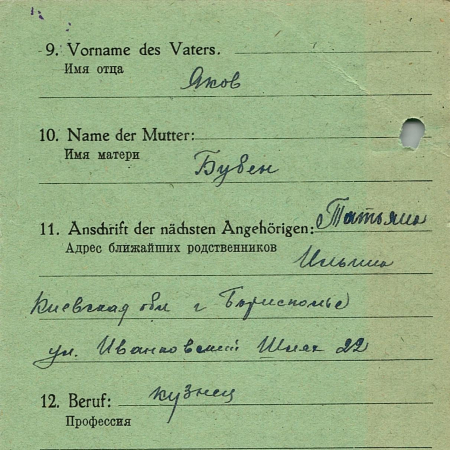 9. Vorname des Vaters.
Имя отца
Яков
10. Name der Mutter:
Имя матери
Бувен
11. Anschrift der nächsten Angehörigen: Татьяна
Адрес ближайших родственников
Ильина
Киевская обл г Борисполье
ул. Иванковский Шлях 22
12. Beruf: кузнец
Профессия